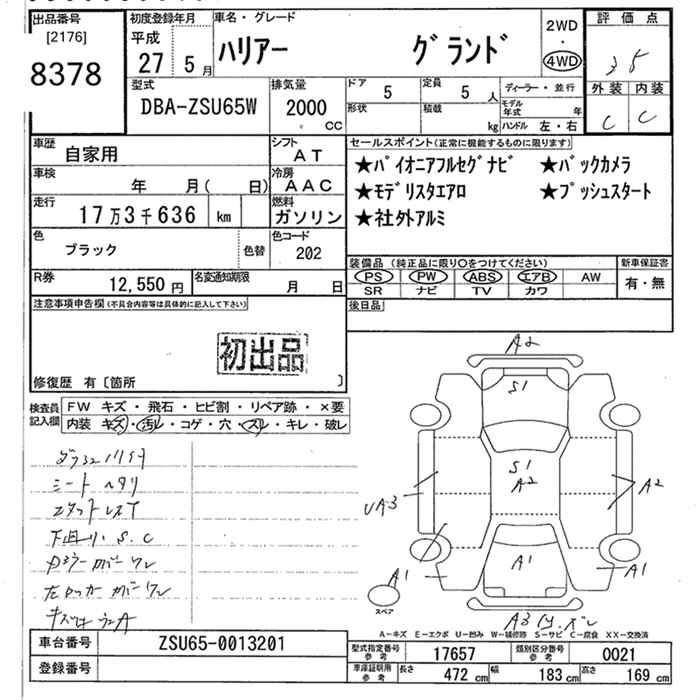 出品番号
[2176]
8378
初度登録年月
平成
27 5月
車名・グレード
ハリアー グランド
2WD
・
4WD
評価点
3 5
外装 内装
C C
型式
DBA-ZSU65W
排気量
2000
CC
ドア
5
定員
5 人
形状
積載
kg
ディーラー・並行
モデル年式 年
ハンドル 左・右
車歴
自家用
シフト
AT
車検
年 月( 日)
冷房
AAC
走行
17万3千636 km
燃料
ガソリン
色
ブラック
色替
色コード
202
R券
12,550円
名変通知期限
月 日
セールスポイント(正常に機能するものに限ります)
★パイオニアフルセグナビ ★バックカメラ
★モデリスタエアロ ★プッシュスタート
★社外アルミ
装備品 (純正品に限り○をつけてください)
PS PW ABS エアB AW
SR ナビ TV カワ
新車保証書
有・無
後日品
注意事項申告欄(不具合内容等は具体的に記入して下さい)
初出品
修復歴 有〔箇所 〕
検査員記入欄
FW キズ・飛石・ヒビ割・リペア跡・×要
内装 キズ・汚レ・コゲ・穴・スレ・キレ・破レ
シート ヘタリ
下廻り S.C
A2
S1
S1
A2
UA3
A2
A1
A1
A1
スペア
A3
A－キズ E－エクボ U－凹み W－補修跡 S－サビ C－腐食 XX－交換済
車台番号
ZSU65-0013201
登録番号
型式指定番号 参考
17657
類別区分番号 参考
0021
車庫証明用 参考
長さ 472 cm 幅 183 cm 高さ 169 cm